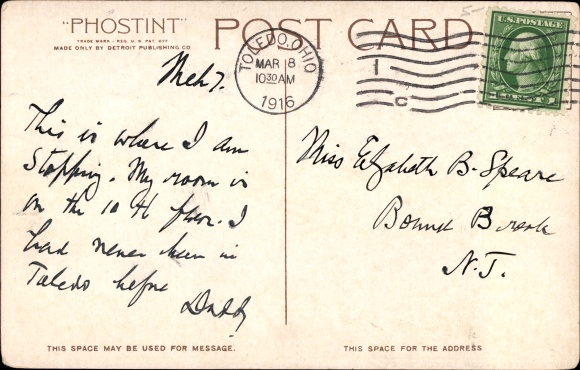 "PHOSTINT"
TRADE MARK - REG. U.S. PAT. OFF.
MADE ONLY BY DETROIT PUBLISHING CO
POST CARD
TOLEDO, OHIO
MAR 8
10 30 AM
1916
1
C
U.S. POSTAGE
Mch 7.
This is where I am
Stopping. My room is
on the 10th floor. I
had never been in
Toledo before
Daddy
Miss Elizabeth B. Speare
Bound Brook
N.J.
THIS SPACE MAY BE USED FOR MESSAGE.
THIS SPACE FOR THE ADDRESS